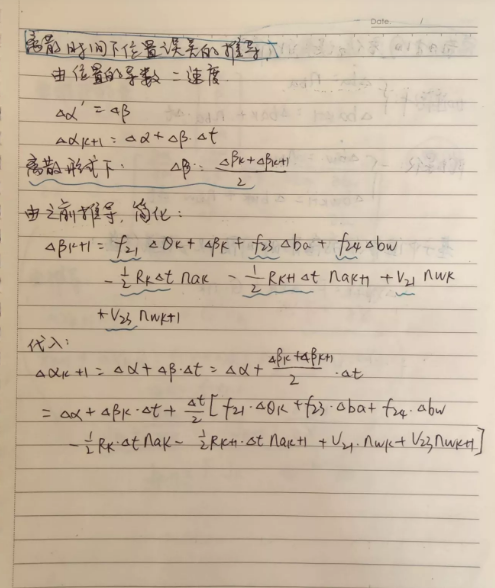 Date. /
离散时间下位置误差的推导
由位置的导数=速度
Δα' = Δβ
Δαk+1 = Δα + Δβ·Δt
离散形式下: Δβ: (Δβk+Δβk+1)/2
由之前推导, 简化:
Δβk+1 = f21 Δθk + Δβk + f23 Δba + f24 Δbw
- 1/2 Rk Δt nak - 1/2 Rk+1 Δt nak+1 + V21 nwk
+ V23 nwk+1
代入:
Δαk+1 = Δα + Δβ·Δt = Δα + (Δβk+Δβk+1)/2 ·Δt
= Δα + Δβk·Δt + Δt/2 [f21·Δθk + f23·Δba + f24·Δbw
- 1/2 Rk·Δt nak - 1/2 Rk+1·Δt nak+1 + V21·nwk + V23 nwk+1]